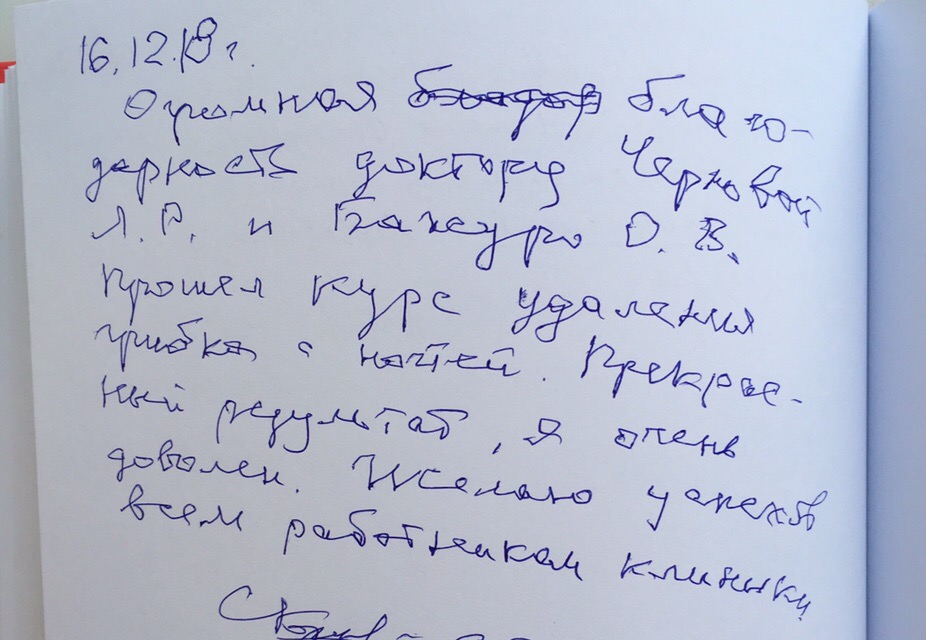 16.12.18 г.
Огромная благо-
дарность доктору Черновой
Л.Р. и О.В.
Прошел курс удаления
грибка с ногтей. Прекрас-
ный результат, я очень
доволен. Желаю успехов
всем работникам клиники